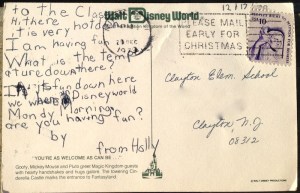 to the Class
Hi there
it is very hot down
I am having fun
What is the temp
ature down there?
It is fun down here
we Disneyworld
Monday Morning
are you having fun?
by
from Holly
Walt Disney World
DEC
EASE MAIL
EARLY FOR
CHRISTMAS
Clayton Elem. School
Clayton, N.J
08312
"YOU'RE AS WELCOME AS CAN BE . . ."
Goofy, Mickey Mouse and Pluto greet Magic Kingdom guests
with hearty handshakes and huge gates. The towering Cin-
derella Castle marks the entrance to Fantasyland.